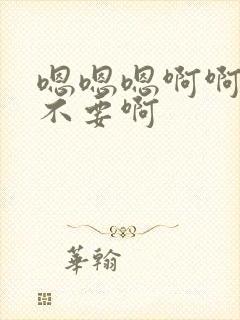 嗯嗯嗯啊啊
不要啊
華翰